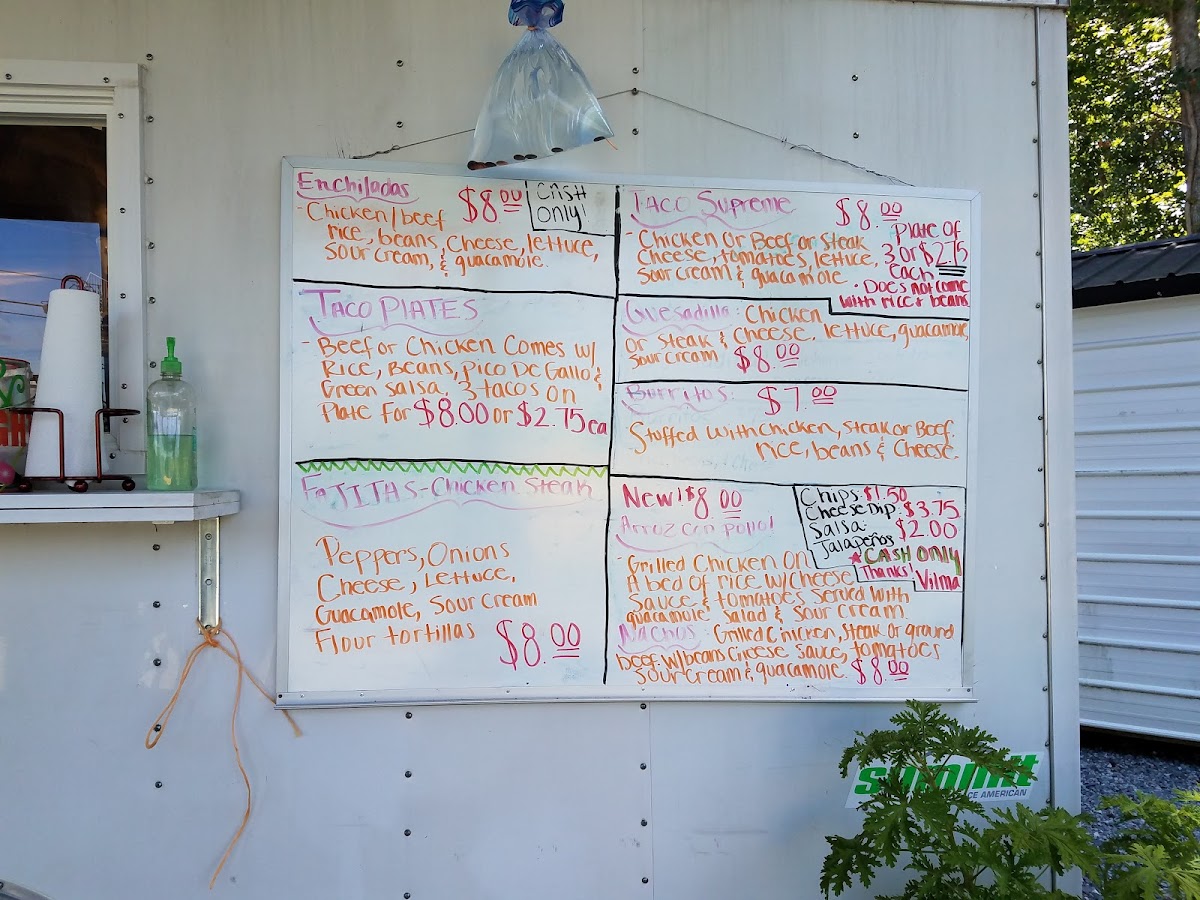 Enchiladas $8.00
Cash
only!
-Chicken/beef
rice, beans, cheese, lettuce,
sour cream, & guacamole.
TACO PLATES
- Beef or Chicken Comes w/
Rice, Beans, Pico De Gallo &
Green Salsa, 3 tacos on
Plate For $8.00 or $2.75 ea
FAJITAS-Chicken Steak
Peppers, Onions
Cheese, Lettuce,
Guacamole, Sour Cream
Flour tortillas $8.00
TACO Supreme $8.00
-Chicken Or Beef or Steak
Cheese, tomatoes, lettuce,
Sour cream & guacamole
Plate of
3 or $2.75
each
• Does not come
with rice & beans
Quesadilla: Chicken
or Steak & Cheese, lettuce, guacamole,
Sour cream $8.00
Burritos: $7.00
Stuffed with chicken, steak or Beef.
rice, beans & Cheese.
New! $8.00
Arroz con pollo!
-Grilled Chicken On
A bed of rice w/cheese
Sauce & tomatoes Served With
guacamole salad & sour cream
Chips $1.50
Cheese Dip: $3.75
Salsa: $2.00
Jalapeños
*CASH ONLY
Thanks! Vilma
Nachos: Grilled Chicken, Steak or ground
beef w/beans cheese sauce, tomatoes
Sour cream & guacamole $8.00
summit
CE AMERICAN